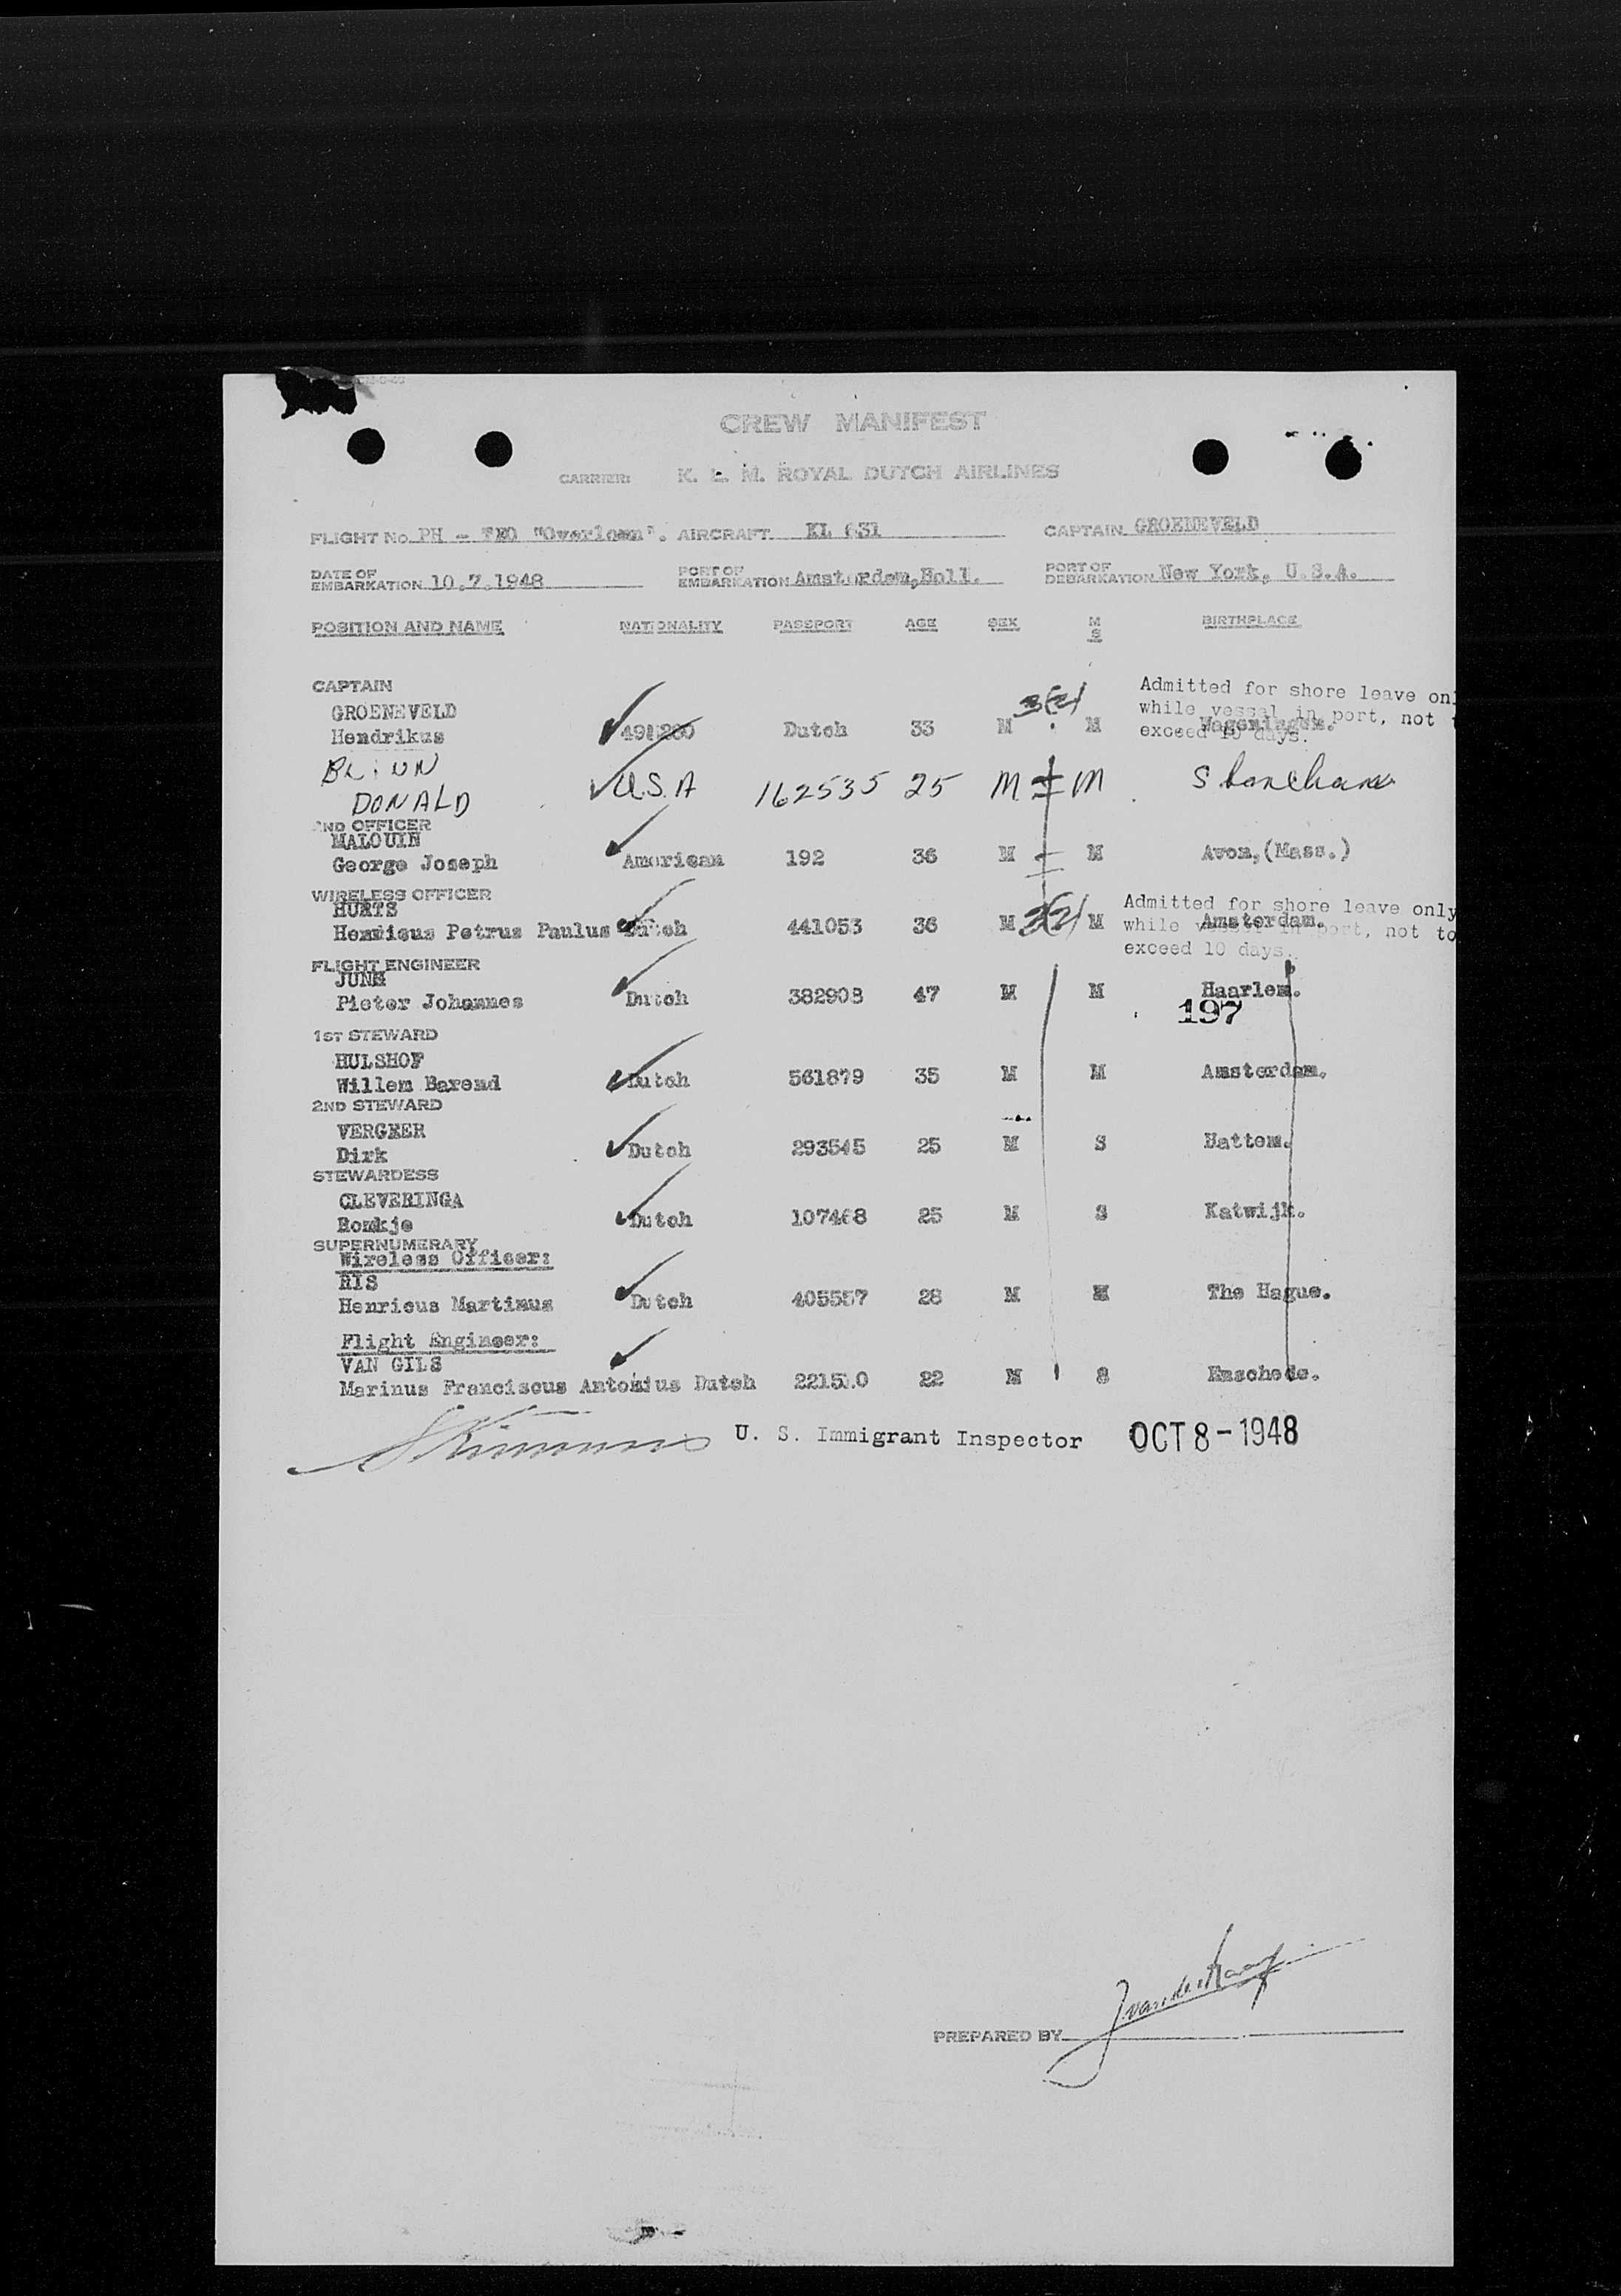 CREW MANIFEST
CARRIER: K. L. M. ROYAL DUTCH AIRLINES
FLIGHT No. PH - "Overloon". AIRCRAFT KL 631 CAPTAIN GROENEVELD
DATE OF EMBARKATION 10.7.1948 PORT OF EMBARKATION Amsterdam, Holl. PORT OF DEBARKATION New York, U.S.A.
POSITION AND NAME NATIONALITY PASSPORT AGE SEX M S BIRTHPLACE
CAPTAIN
Admitted for shore leave onl
GROENEVELD 3(2)
while vessel in port, not t
Hendrikus Dutch 33 M M Wageningen.
exceed 10 days.
DONALD U.S.A 162535 25 M M
2ND OFFICER
MALOUIN
George Joseph American 192 36 M M Avon,(Mass.)
WIRELESS OFFICER
Admitted for shore leave only
HURTS
Henricus Petrus Paulus Dutch 441053 36 M 3(2) M Amsterdam.
while vessel in port, not to
exceed 10 days.
FLIGHT ENGINEER
Pieter Johannes Dutch 382908 47 M M Haarlem.
197
1ST STEWARD
HULSHOF
Willem Barend Dutch 561879 35 M M Amsterdam.
2ND STEWARD
VERGEER
Dirk Dutch 293545 25 M S Hattem.
STEWARDESS
CLEVERINGA
Romkje Dutch 107468 25 M S Katwijk.
SUPERNUMERARY
Wireless Officer:
Henricus Martinus Dutch 405557 28 M M The Hague.
Flight Engineer:
VAN GILS
Marinus Franciscus Antonius Dutch 221510 22 M S Enschede.
U. S. Immigrant Inspector OCT 8 - 1948
PREPARED BY